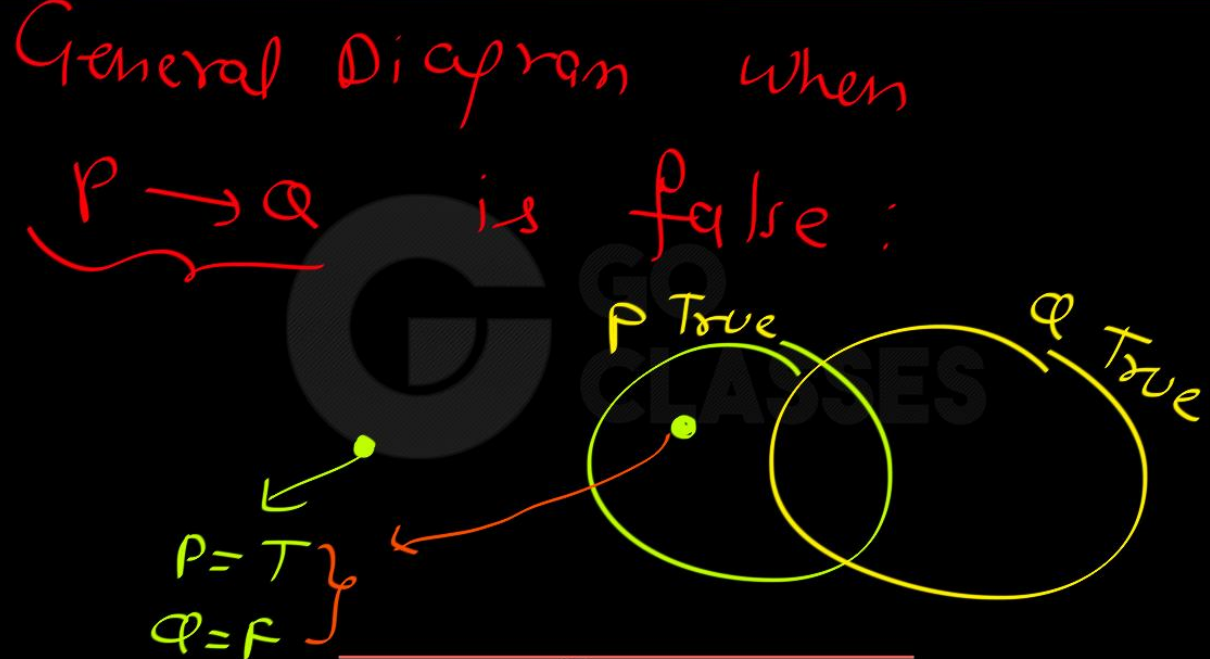 General Diagram when
P → Q is false :
GO
CLASSES
P True
Q True
P = T
Q = F